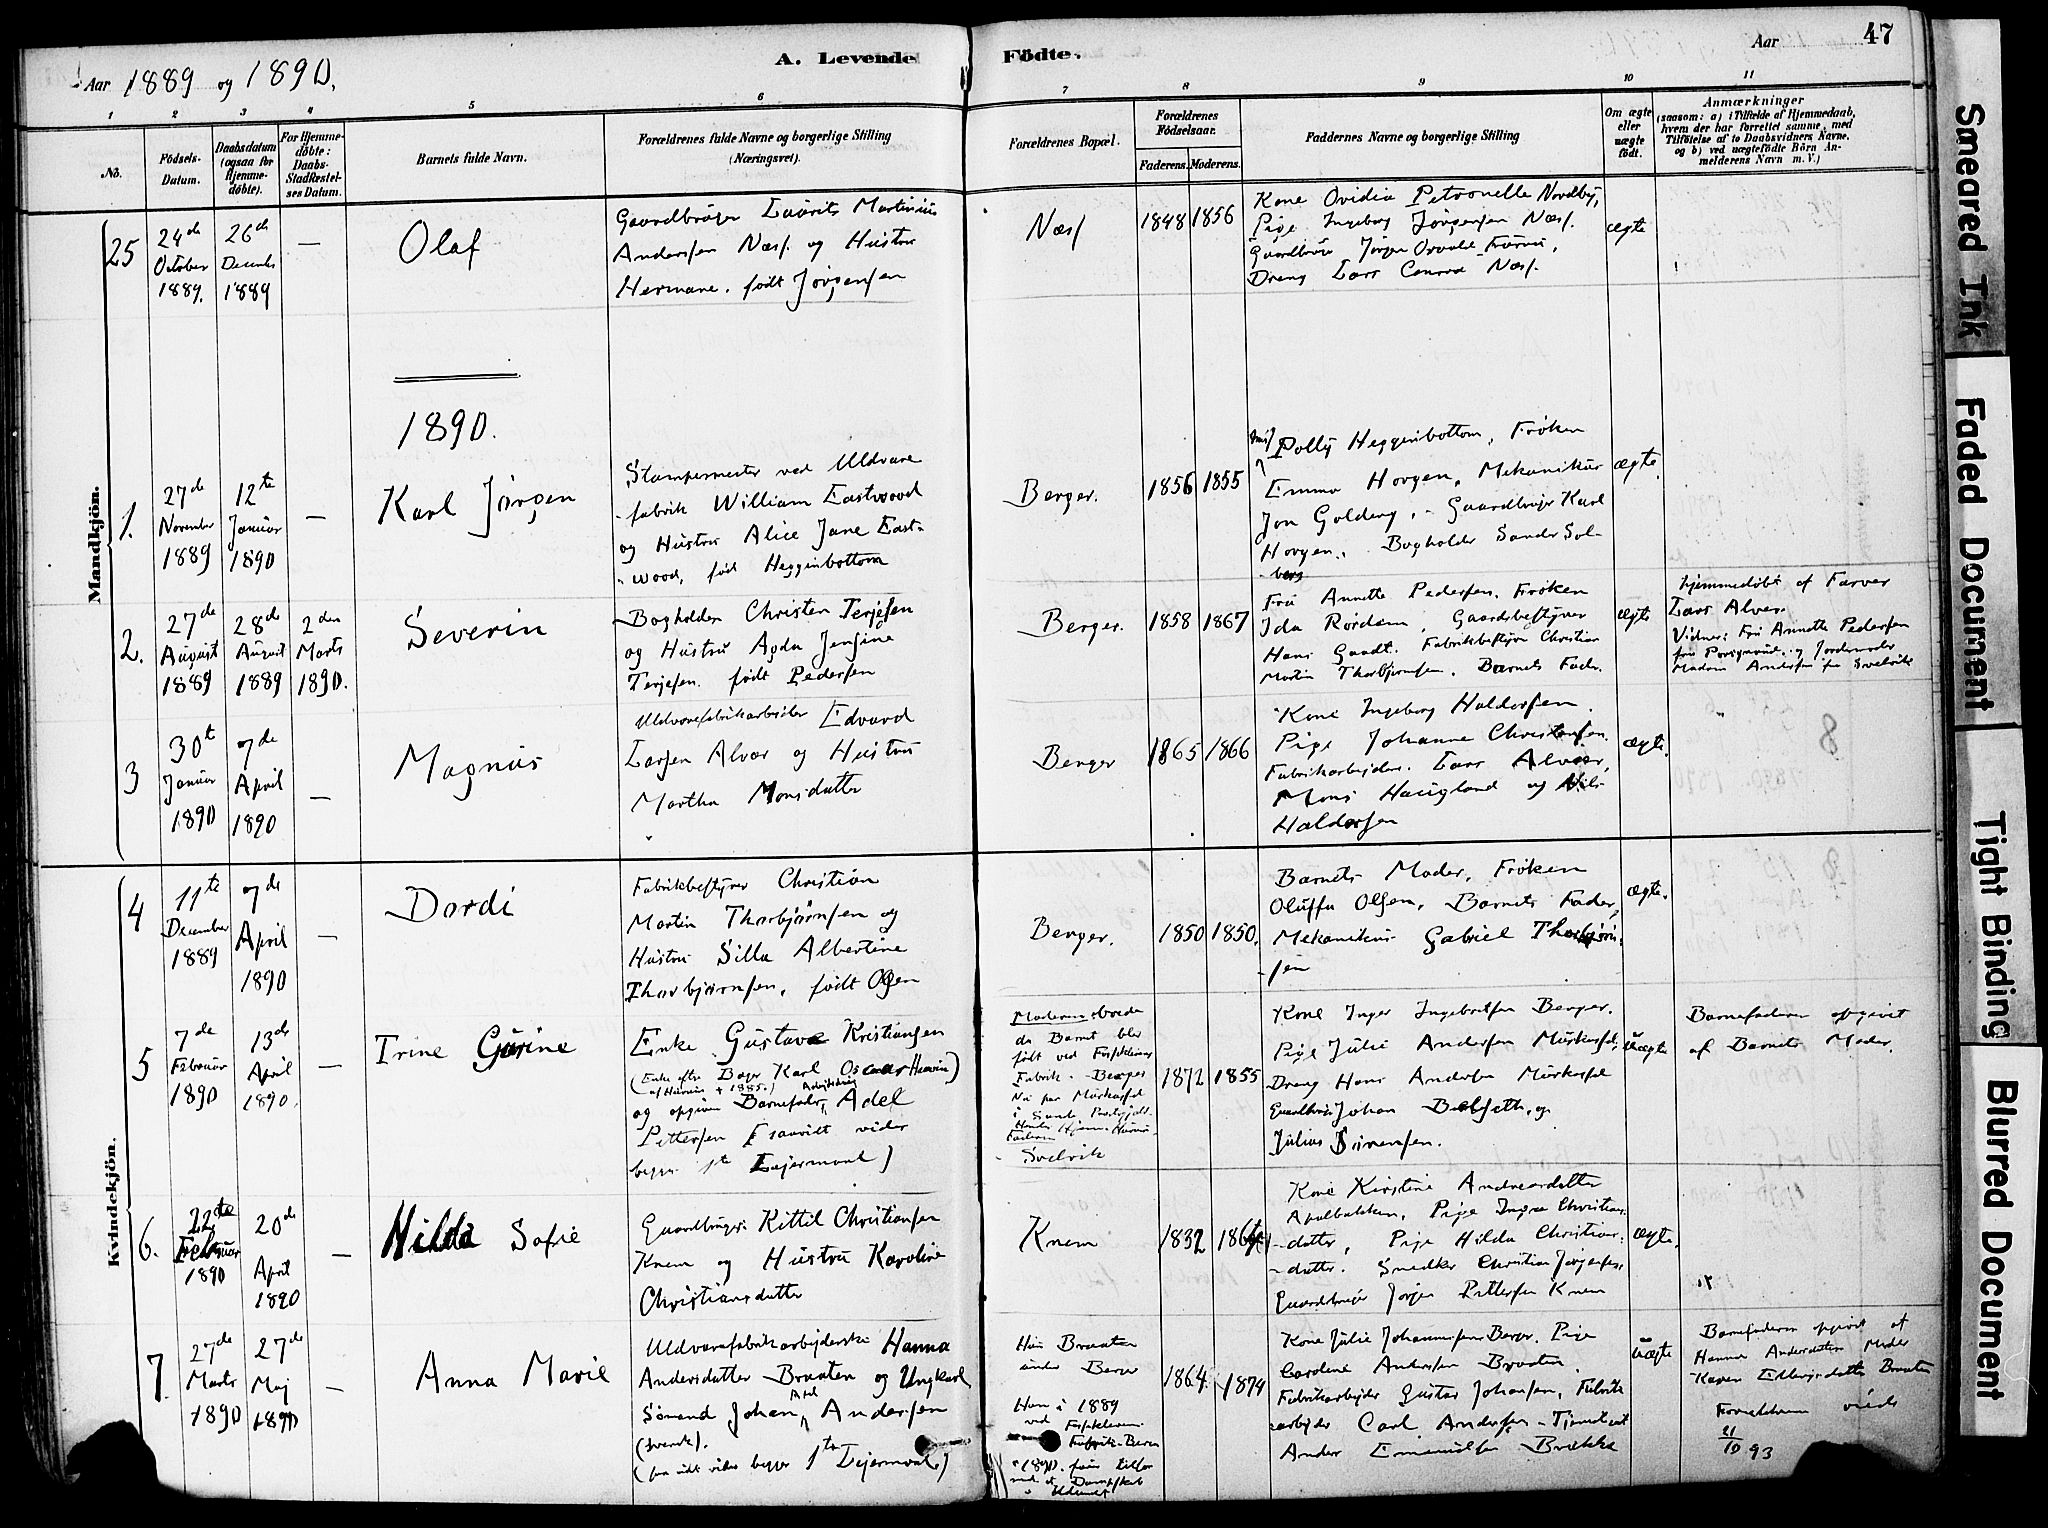 Aar 1889 og 1890.
A. Levende Födte.
Aar 47
1 2 3 4 5 6 7 8 9 10 11
No.
Födsels-
Datum.
Daabsdatum
(ogsaa for
Hjemme-
döbte).
For Hjemme-
döbte:
Daabs-
Stadfæstel-
ses Datum.
Barnets fulde Navn.
Forældrenes fulde Navne og borgerlige Stilling
(Næringsvei).
Forældrenes Bopæl.
Forældrenes
Födselsaar.
Faderens. Moderens.
Faddernes Navne og borgerlig Stilling
Om ægte
eller
uægte
födt.
Anmærkninger
(saasom: a) i Tilfælde af Hjemmedaab,
hvem der har forrettet samme, med
Tilföielse af to Daabsvidners Navne,
og b) ved uægtefödte Börn An-
melderens Navn m. V.)
Mandkjön.
25
24de
October
1889.
26de
Decemb
1889
—
Olaf
Gaardbruger Laurits Martinius
Andersen Næss. og Hustru
Hermane. født Jørgensen
Næss
1848 1856
Kone Ovidia Petronelle Nordby,
Pige Ingeborg Jørgensen Næss.
Dreng Lars Conrad Næss.
ægte
1890.
1.
27de
November
1889
12te
Januar
1890
—
Karl Jörgen
Stampemester ved Uldvare
fabrik William Eastwood
og Hustru Alice Jane East-
wood, født Hegginbottom
Berger.
1856 1855
Polly Hegginbottom, Frøken
Emma Horgen, Mekanikus
Jon Golberg, Gaardbruger Karl
Horgen, Bogholder Sander Sol-
berg
ægte
2.
27de
August
1889
28de
August
1889
2den
Marts
1890.
Severin
Bogholder Christen Terjesen
og Hustru Agda Jensine
Terjesen. født Pedersen
Berger.
1858 1867
Fru Annette Pedersen, Frøken
Ida Rørdam, Gaardsbestyrer
Hans Gaadt. Fabrikbestyrer Christian
Martin Thorbjørnsen. Barnets Fader.
ægte
hjemmedøbt af Farver
Lars Alver.
Vidner: Fru Annette Pedersen
fra Porsgrund, og Jordemoder
Madam Andersen fra Svelvik
3
30t
Januar
1890
7de
April
1890
—
Magnus
Uldvarefabrikarbeider Edvard
Larsen Alver og Hustru
Martha Monsdatter
Berger
1865 1866
Kone Ingeborg Haldorsen.
Pige Johanne Christensen.
Fabrikarbeider. Lars Alver,
Mons Haugland og Nils
Haldorsen
ægte.
8
Kvindekjön.
4
11te
December
1889
7de
April
1890
—
Dordi
Fabrikbestyrer Christian
Martin Thorbjörnsen og
Hustru Silla Albertine
Thorbjörnsen, født Olsen
Berger.
1850 1850.
Barnets Moder, Frøken
Oluffa Olsen, Barnets Fader,
Mekanikus Gabriel Thorbjørn-
sen
ægte.
5
7de
Februar
1890
13de
April
1890.
—
Trine Gurine
Enke Gustava Kristiansen
(Enke efter Bager Karl Oscar
og opgiven Barnefader, Adel
Pettersen
begges 1ste Leiermaal)
Moderens
da Barnet blev
født ved
Fabrik. Berger
Svelvik
1872 1855
Kone Inger Ingebretsen Berger.
Pige Julie Andersen
Dreng Hans Andersen
Gaardbruger Johan
Julius Simensen.
uægte
Barnefaderen opgivet
af Barnets Moder.
6.
22de
Februar
1890
20de
April
1890
—
Hilda Sofie
Gaardbruger Kittil Christiansen
Knem og Hustru Karoline
Christiansdatter
Knem
1832
Kone Kirstine Andreasdatter
Apalbakken, Pige Inga Christians-
datter, Pige Hilda Christians-
datter. Snedker Christian Jørgensen,
Gaardbruger Jørgen Pettersen Knem
ægte.
7.
27de
Marts
1890
27de
Maj
1890
—
Anna Marie
Uldvarefabrikarbejderske Hanna
Andersdatter Braaten og Ungkarl
Sömand Johan Axel Andersen
(svensk).
begges 1ste Leiermaal)
Hun Braaten
under Berger
Han i 1889
ved
Fabrik-Berger
1864. 1874
Kone Julie Johannesen Berger. Pige
Caroline Andersen Braaten.
Fabrikarbejder Gustav Johansen, Fabrik
arbejder Carl Andersen
Anders Emanuelsen Brække
uægte
Barnefaderen opgivet af
Hanna Andersdatters Moder
Karen Ellingsdatter Braaten
Forældrene viede
21/10 93
Smeared Ink
Faded Document
Tight Binding
Blurred Document